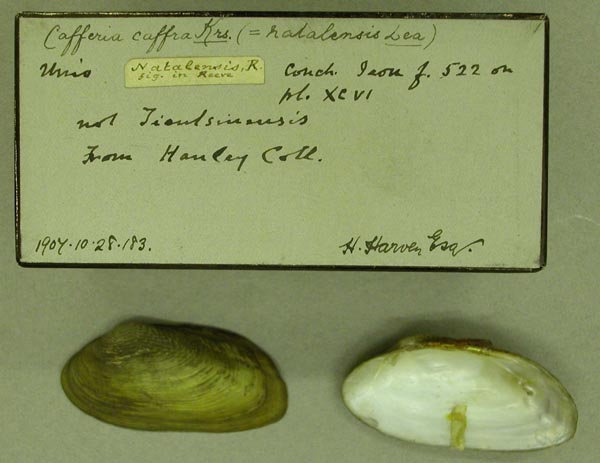 Cafferia caffra Krs. (= natalensis Lea)
Unio Natalensis, R. Conch. Icon f. 522 on
fig. in Reeve
pl. XCVI
not
From Hanley Coll.
1907.10.28.183. H. Harvey Esq.